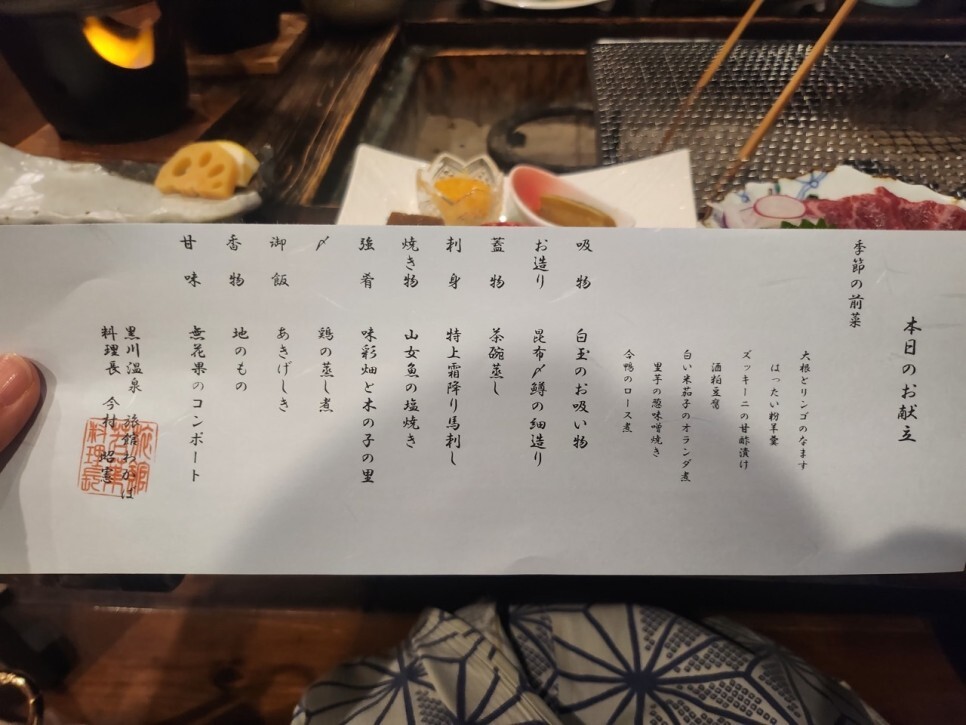 本日のお献立
季節の前菜
大根とリンゴのなます
はったい粉羊羹
ズッキーニの甘酢漬け
酒粕豆富
白い米茄子のオランダ煮
里芋の葱味噌焼き
合鴨のロース煮
吸物 白玉のお吸い物
お造り 昆布〆鱒の細造り
蓋物 茶碗蒸し
刺身 特上霜降り馬刺し
焼き物 山女魚の塩焼き
強肴 味彩畑と木の子の里
〆 鶏の蒸し煮
御飯 あきげしき
香物 地のもの
甘味 無花果のコンポート
黒川温泉 旅館わかば
料理長 今村 昭憲